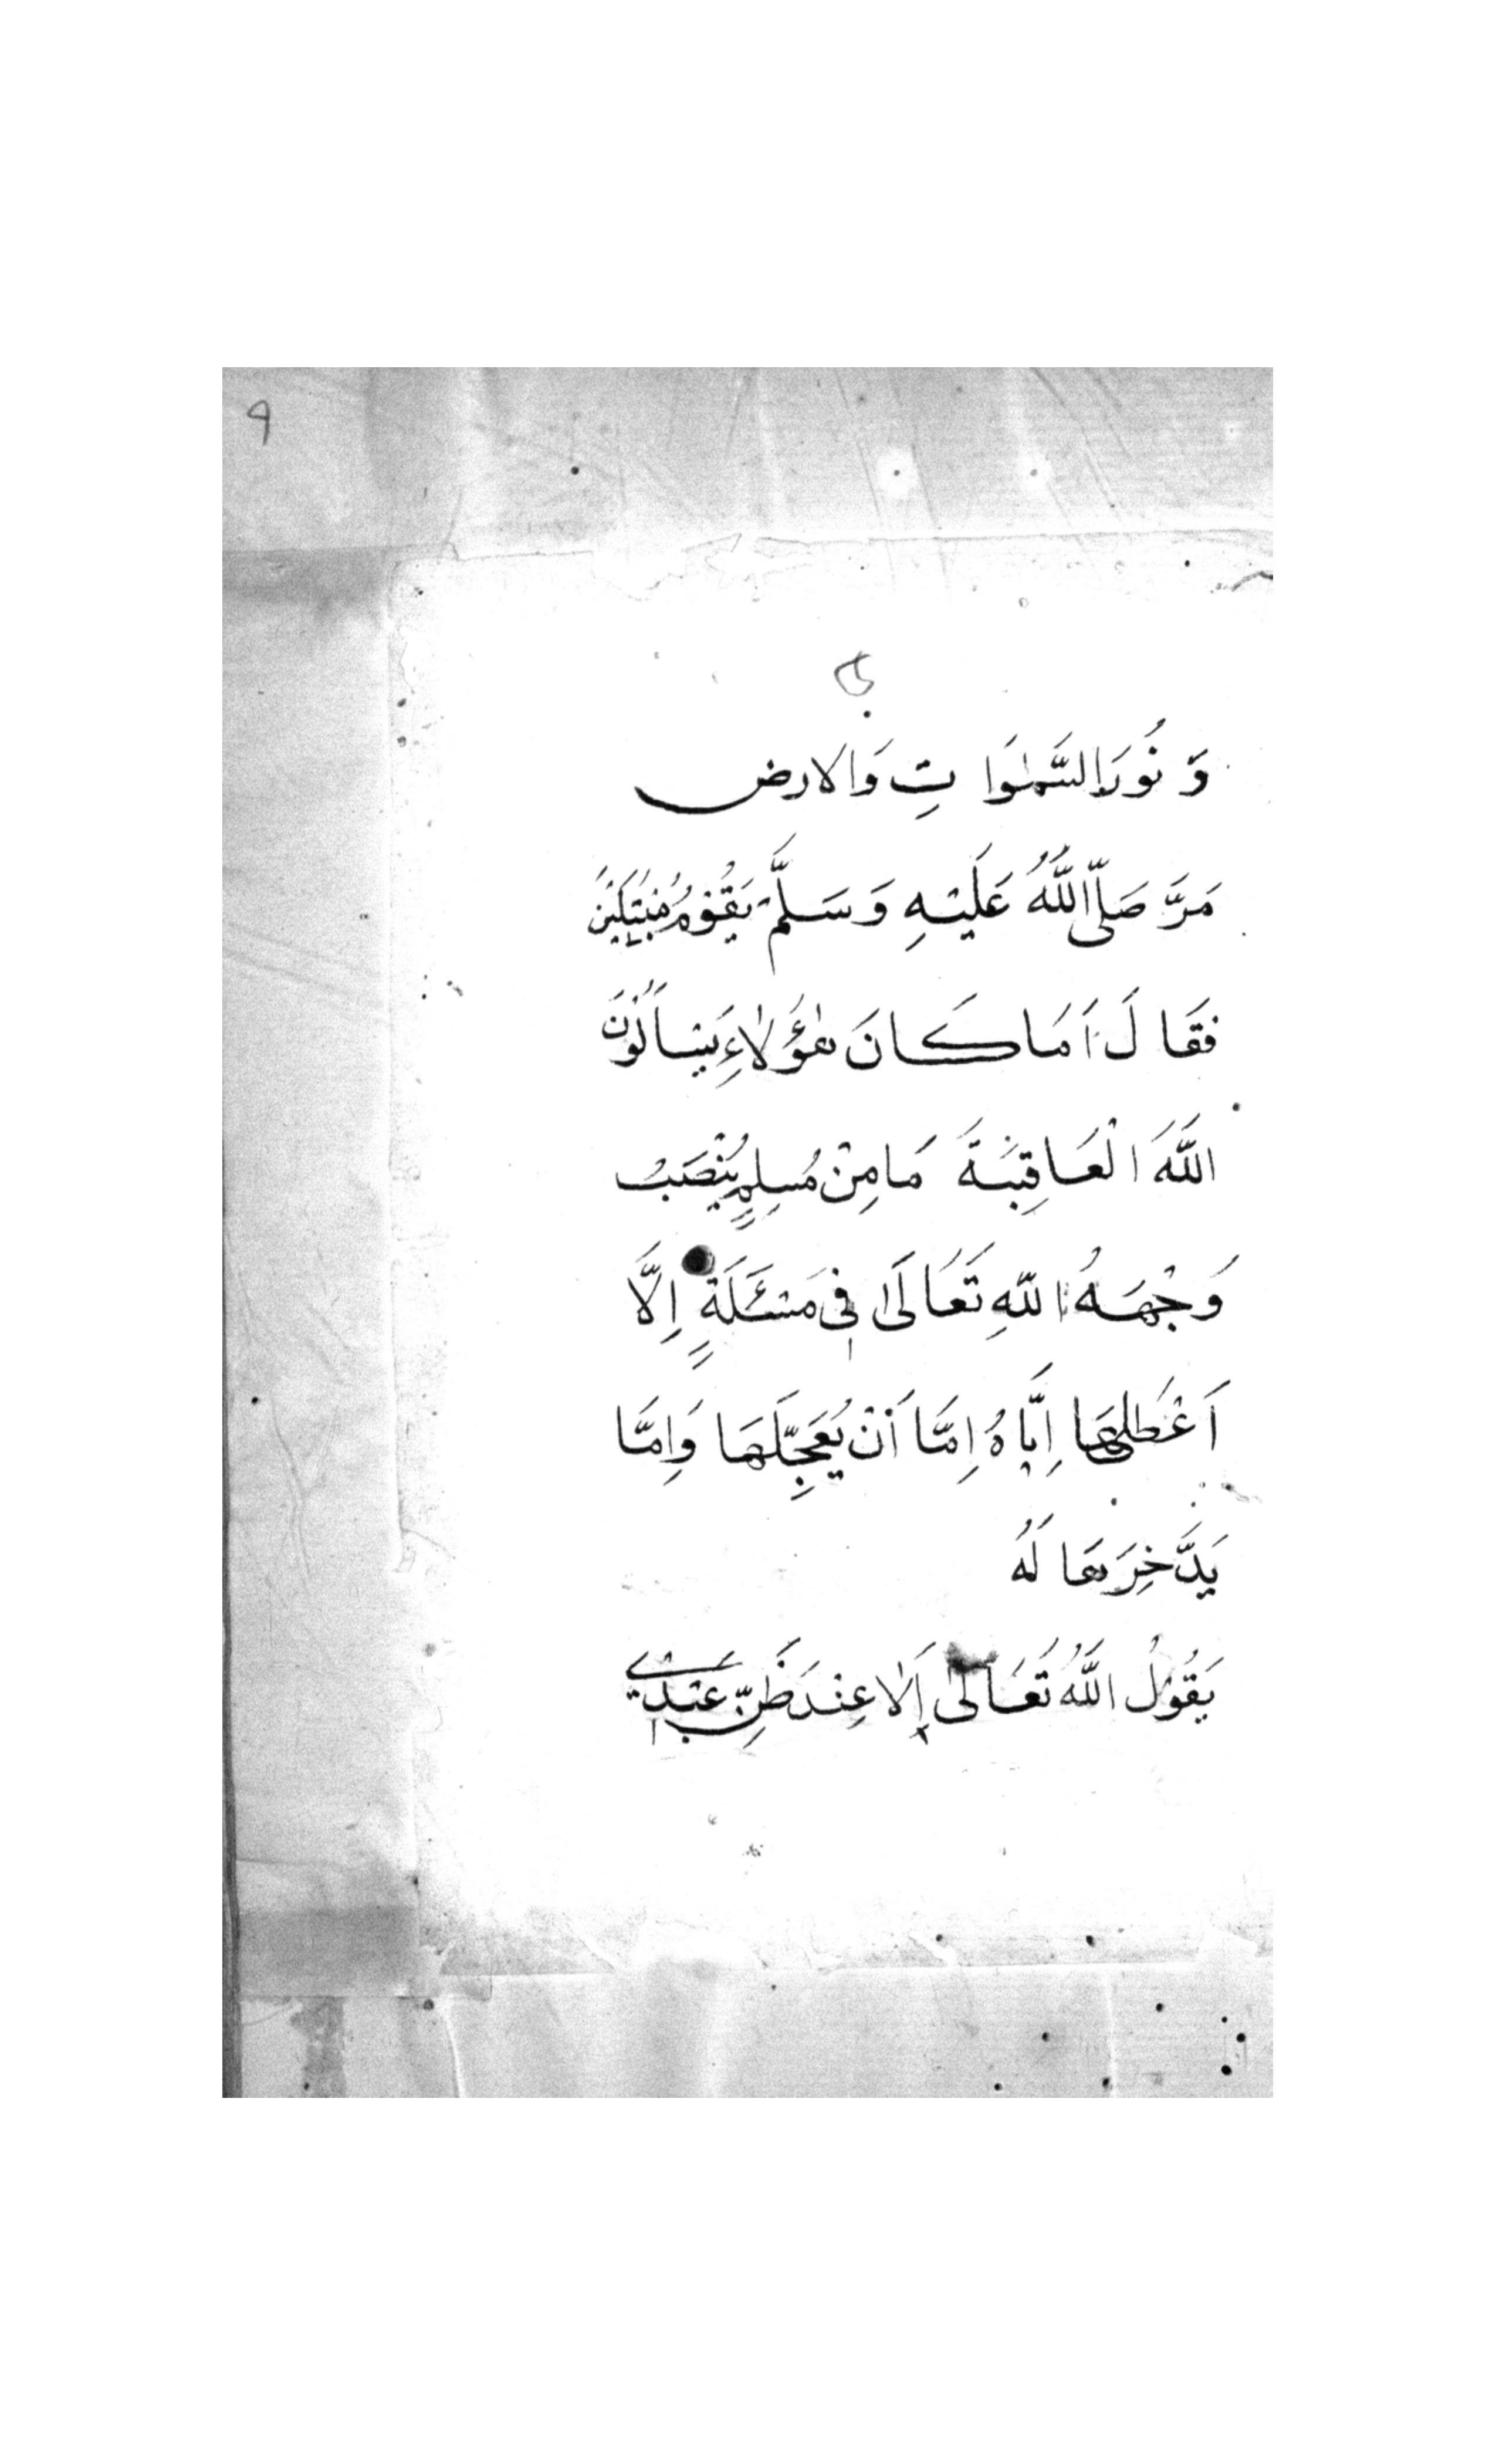 ٩
وَ نُورَ السَّمٰوَا تِ وَالارض
مَرَّ صَلَّى اللّٰهُ عَلَيْهِ وَسَلَّمَ بِقَوْمٍ مُبْتَلَيْنَ
فَقَا لَ اَمَا كَانَ هٰؤُلَاءِ يَسْأَلُوْنَ
اللّٰهَ الْعَاقِبَةَ مَا مِنْ مُسْلِمٍ يَنْصَبُ
وَجْهَهُ اللّٰهِ تَعَالَىٰ فِى مَسْئَلَةٍ اِلَّا
اَعْطٰىهَا اِيَّاهُ اِمَّا اَنْ يُعَجِّلَهَا وَاِمَّا
يَدَّخِرَهَا لَهُ
يَقُوْلُ اللّٰهُ تَعَالَىٰ اَلَا عِنْدَ ظَنِّ عَبْدِيْ